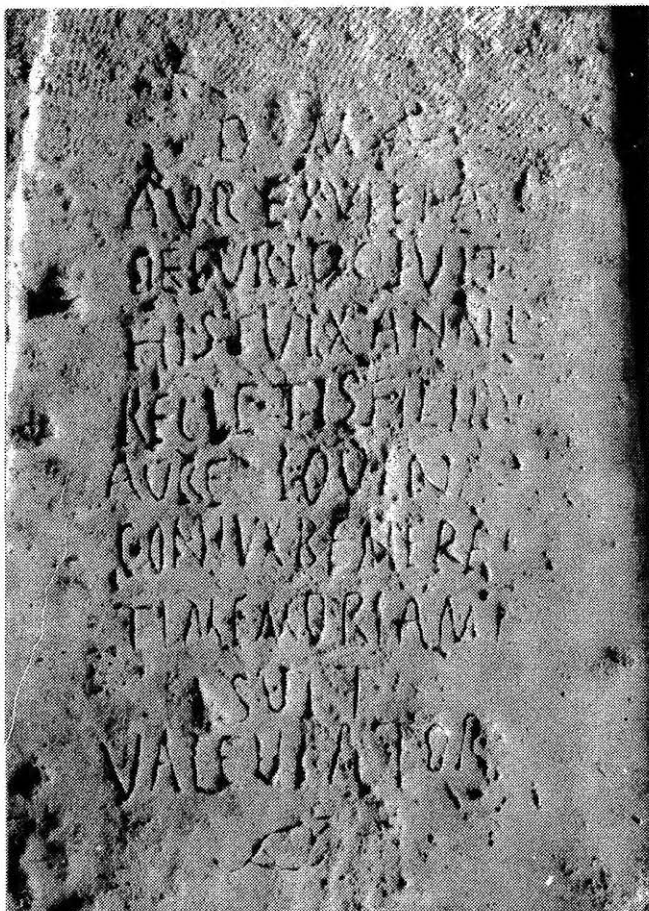 D M
AVR EXVPERA
DECVRIO CIVIT
HIS T VIX ANN L
RECLE TIS FILIIS
AVRE IOVINA
CONIVX BEMERE
TI MEMORIAM P
SUIT
VALE VIATOR